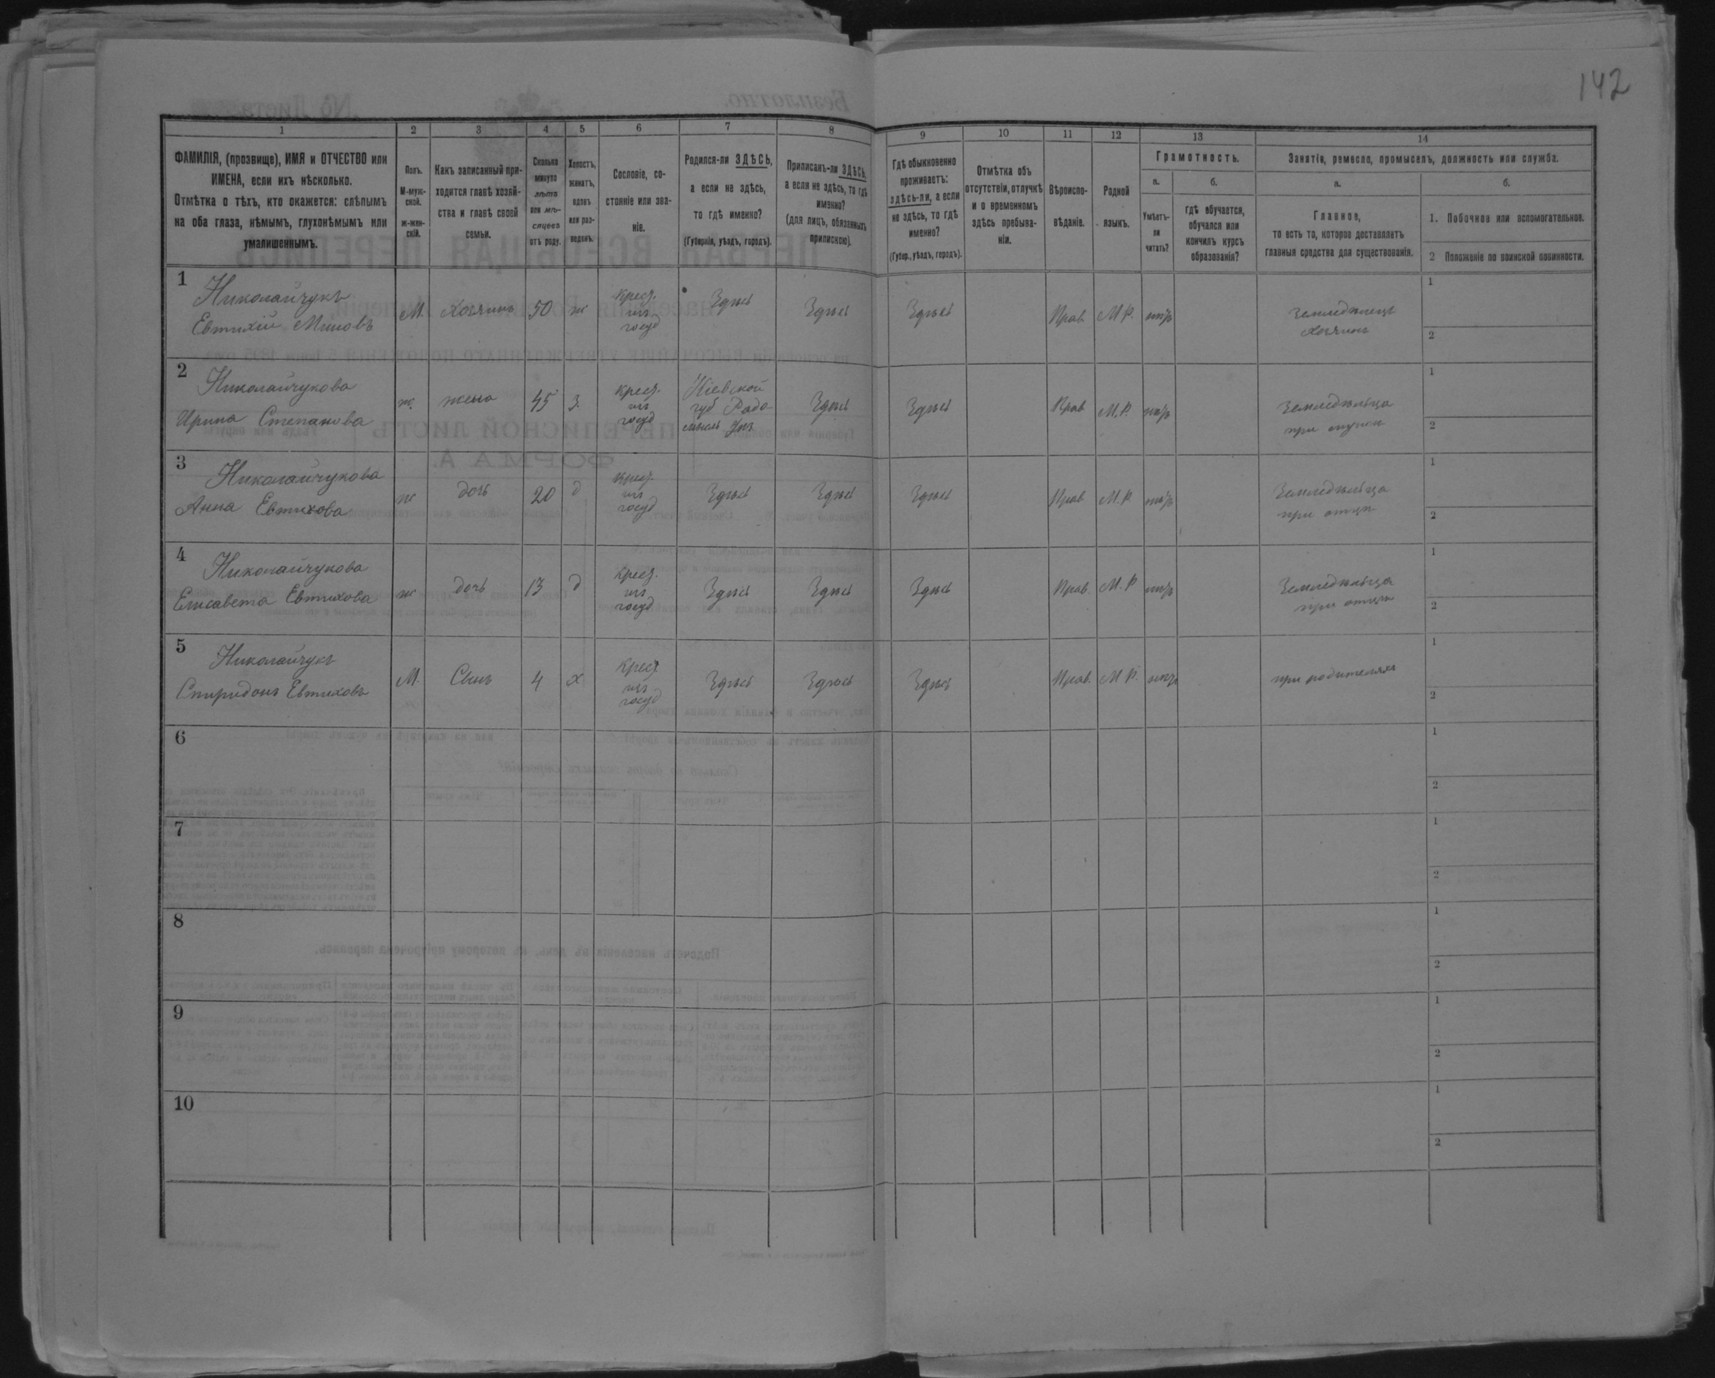 142
1 2 3 4 5 6 7 8 9 10 11 12 13 14
ФАМИЛІЯ, (прозвище), ИМЯ и ОТЧЕСТВО или
ИМЕНА, если ихъ нѣсколько.
Отмѣтка о тѣхъ, кто окажется: слѣпымъ
на оба глаза, нѣмымъ, глухонѣмымъ или
умалишеннымъ.
Полъ.
М-муж-
ской.
ж-жен-
скій.
Какъ записанный при-
ходится главѣ хозяй-
ства и главѣ своей
семьи.
Сколько
минуло
лѣтъ
или мѣ-
сяцевъ
отъ роду.
Холостъ,
женатъ,
вдовъ
или раз-
веденъ.
Сословіе, со-
стояніе или зва-
ніе.
Родился-ли ЗДѢСЬ,
а если не здѣсь,
то гдѣ именно?
(Губернія, уѣздъ, городъ).
Приписанъ-ли ЗДѢСЬ,
а если не здѣсь, то гдѣ
именно?
(для лицъ, обязанныхъ
припискою).
Гдѣ обыкновенно
проживаетъ:
здѣсь-ли, а если
не здѣсь, то гдѣ
именно?
(Губер., уѣздъ, городъ).
Отмѣтка объ
отсутствіи, отлучкѣ
и о временномъ
здѣсь пребыва-
ніи.
Вѣроиспо-
вѣданіе.
Родной
языкъ.
Грамотность.
а. б.
Умѣетъ-
ли
читать?
гдѣ обучается,
обучался или
кончилъ курсъ
образованія?
Занятіе, ремесло, промыселъ, должность или служба.
а. б.
Главное,
то есть то, которое доставляетъ
главныя средства для существованія.
1. Побочное или вспомогательное.
2 Положеніе по воинской повинности.
1
Николайчукъ
Евтихій
М. хозяинъ 50 ж
крест.
изъ
госуд
Здѣсь Здѣсь Здѣсь Прав. М.Р. нѣтъ
Земледѣлецъ
хозяинъ
1
2
2
Николайчукова
Ирина Степанова
ж. жена 45 з.
крест.
изъ
госуд
Кіевской
губ Радо
мысль Уѣз.
Здѣсь Здѣсь Прав М.Р нѣтъ
Земледѣлица
при мужѣ
1
2
3
Николайчукова
Анна Евтихова
ж дочь 20 д
крест.
изъ
госуд
Здѣсь Здѣсь Здѣсь Прав М.Р нѣтъ
Земледѣлица
при отцѣ
1
2
4
Николайчукова
Елисавета Евтихова
ж дочь 13 д
крест.
изъ
госуд
Здѣсь Здѣсь Здѣсь Прав. М.Р нѣтъ
Земледѣлица
при отцѣ
1
2
5
Николайчукъ
Спиридонъ Евтиховъ
М. Сынъ 4 х
крест
изъ
госуд
Здѣсь Здѣсь Здѣсь Прав. М.Р. нѣтъ
при родителяхъ
1
2
6
1
2
7
1
2
8
1
2
9
1
2
10
1
2